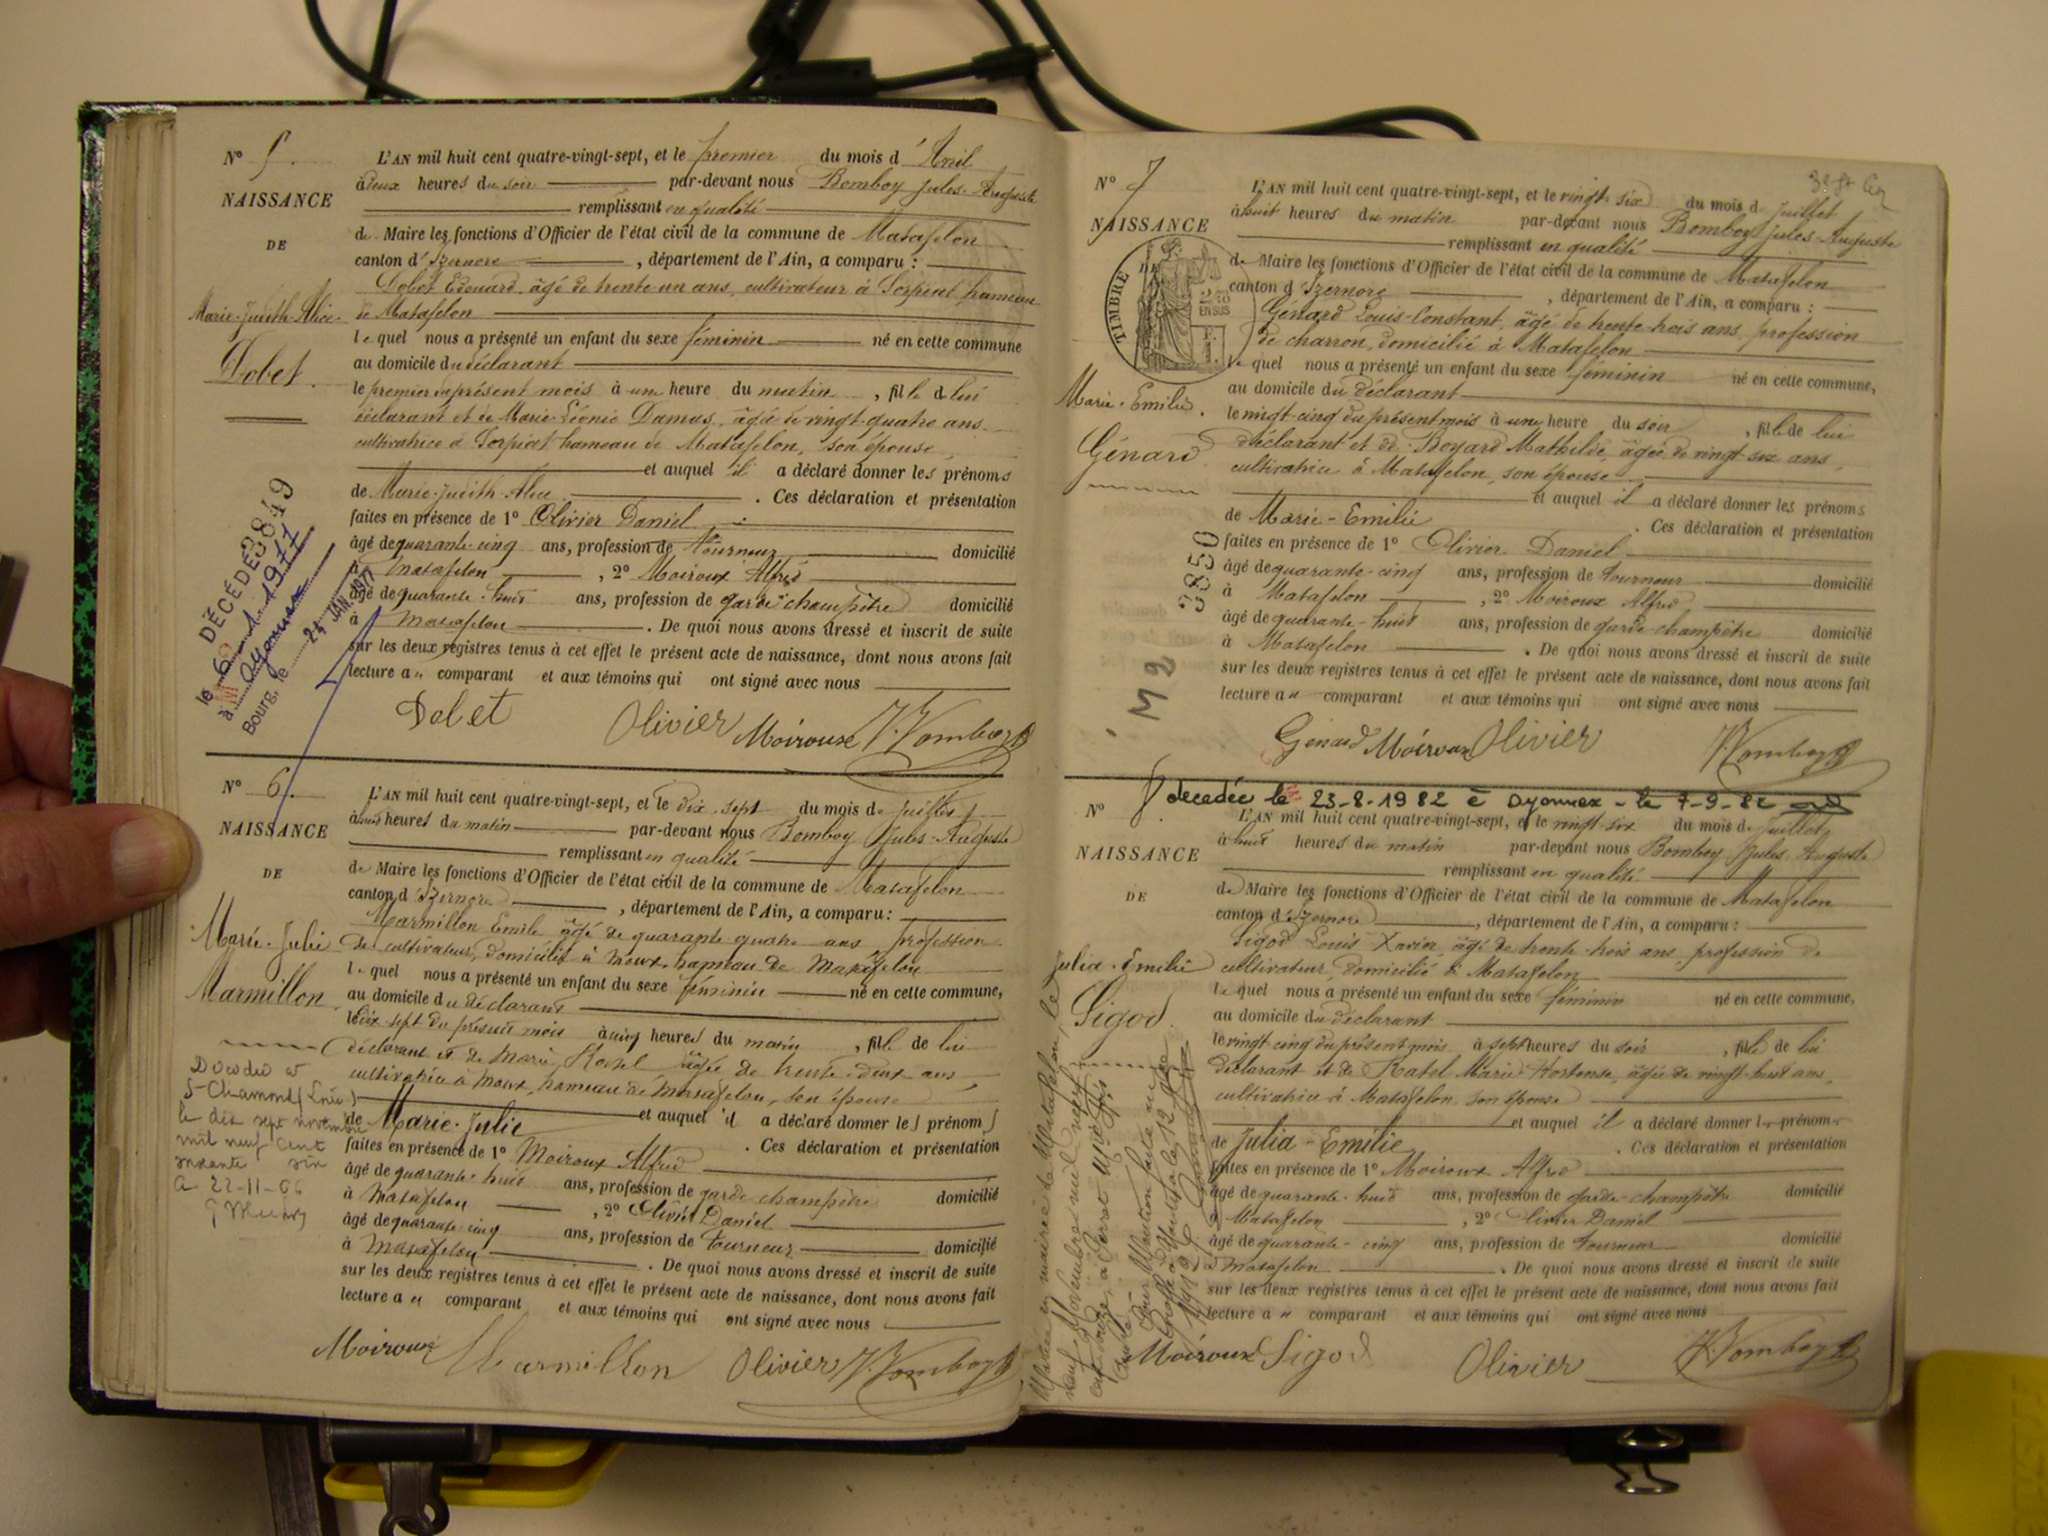 N° 5.
NAISSANCE
DE
Marie-Judith-Alice
Dobet.
L'AN mil huit cent quatre-vingt-sept, et le premier du mois d'Avril
à deux heures du soir par-devant nous Bomboy Jules-Auguste
remplissant en qualité
de Maire les fonctions d'Officier de l'état civil de la commune de Matafelon
canton d'Izernore, département de l'Ain, a comparu :
Dobet Edouard, âgé de trente un ans, cultivateur à Sorpiat, hameau
de Matafelon
le quel nous a présenté un enfant du sexe féminin né en cette commune
au domicile du déclarant
le premier du présent mois à une heure du matin, fille de lui
déclarant et de Marie Léonie Damas, âgée de vingt-quatre ans
cultivatrice à Sorpiat hameau de Matafelon, son épouse
et auquel il a déclaré donner les prénoms
de Marie-Judith-Alice. Ces déclaration et présentation
faites en présence de 1° Olivier Daniel
âgé de quarante-cinq ans, profession de tourneur domicilié
à Matafelon, 2° Moiroux Alfred
âgé de quarante-huit ans, profession de garde champêtre domicilié
à Matafelon. De quoi nous avons dressé et inscrit de suite
sur les deux registres tenus à cet effet le présent acte de naissance, dont nous avons fait
lecture au comparant et aux témoins qui ont signé avec nous
Dobet Olivier Moiroux J. Bomboy
3849
DÉCÉDÉE
le 6.1.1977
à Oyonnax
Bourg, le 24 JAN. 1977
N° 6.
NAISSANCE
DE
Marie-Julie
Marmillon
L'AN mil huit cent quatre-vingt-sept, et le dix-sept du mois de juillet
à heures du matin par-devant nous Bomboy Jules-Auguste
remplissant en qualité
de Maire les fonctions d'Officier de l'état civil de la commune de Matafelon
canton d'Izernore, département de l'Ain, a comparu :
Marmillon Emile âgé de quarante quatre ans profession
de cultivateur, domicilié à Moux, hameau de Matafelon
le quel nous a présenté un enfant du sexe féminin né en cette commune,
au domicile du déclarant
le dix-sept du présent mois à cinq heures du matin, fille de lui
déclarant et de Marie Ratel âgée de trente-deux ans,
cultivatrice à Moux, hameau de Matafelon, son épouse
et auquel il a déclaré donner les prénoms
de Marie-Julie. Ces déclaration et présentation
faites en présence de 1° Moiroux Alfred
âgé de quarante-huit ans, profession de garde champêtre domicilié
à Matafelon, 2° Olivier Daniel
âgé de quarante-cinq ans, profession de tourneur domicilié
à Matafelon. De quoi nous avons dressé et inscrit de suite
sur les deux registres tenus à cet effet le présent acte de naissance, dont nous avons fait
lecture au comparant et aux témoins qui ont signé avec nous
Moiroux Marmillon Olivier J. Bomboy
Décédée à
St-Chamond (Loire)
le dix sept novembre
mil neuf cent
soixante six
22-11-66
N° 7
NAISSANCE
DE
TIMBRE
Marie-Emilie.
Génard
L'AN mil huit cent quatre-vingt-sept, et le vingt-six du mois de juillet
à huit heures du matin par-devant nous Bomboy Jules-Auguste
remplissant en qualité
de Maire les fonctions d'Officier de l'état civil de la commune de Matafelon
canton d'Izernore, département de l'Ain, a comparu :
Génard Louis-Constant, âgé de trente-trois ans, profession
de charron, domicilié à Matafelon
le quel nous a présenté un enfant du sexe féminin né en cette commune,
au domicile du déclarant
le vingt-cinq du présent mois à une heure du soir, fille de lui
déclarant et de Boyard Mathilde, âgée de vingt-six ans,
cultivatrice à Matafelon, son épouse
et auquel il a déclaré donner les prénoms
de Marie-Emilie. Ces déclaration et présentation
faites en présence de 1° Olivier Daniel
âgé de quarante-cinq ans, profession de tourneur domicilié
à Matafelon, 2° Moiroux Alfred
âgé de quarante-huit ans, profession de garde-champêtre domicilié
à Matafelon. De quoi nous avons dressé et inscrit de suite
sur les deux registres tenus à cet effet le présent acte de naissance, dont nous avons fait
lecture au comparant et aux témoins qui ont signé avec nous
Génard Moiroux Olivier J. Bomboy
3850
M 2
N° 8.
décédée le 23-8-1982 à Oyonnax - le 7-9-82
NAISSANCE
DE
Julia-Emilie
Sigod.
L'AN mil huit cent quatre-vingt-sept, et le vingt-six du mois de Juillet
à huit heures du matin par-devant nous Bomboy Jules Auguste
remplissant en qualité
de Maire les fonctions d'Officier de l'état civil de la commune de Matafelon
canton d'Izernore, département de l'Ain, a comparu :
Sigod Louis Xavier, âgé de trente-trois ans, profession de
cultivateur, domicilié à Matafelon
le quel nous a présenté un enfant du sexe féminin né en cette commune,
au domicile du déclarant
le vingt cinq du présent mois à sept heures du soir, fille de lui
déclarant et de Ratel Marie-Hortense, âgée de vingt-huit ans,
cultivatrice à Matafelon son épouse
et auquel il a déclaré donner les prénoms
de Julia-Emilie. Ces déclaration et présentation
faites en présence de 1° Moiroux Alfred
âgé de quarante-huit ans, profession de garde-champêtre domicilié
à Matafelon, 2° Olivier Daniel
âgé de quarante-cinq ans, profession de tourneur domicilié
à Matafelon. De quoi nous avons dressé et inscrit de suite
sur les deux registres tenus à cet effet le présent acte de naissance, dont nous avons fait
lecture au comparant et aux témoins qui ont signé avec nous
Moiroux Sigod Olivier J. Bomboy
Mariée en mairie de Matafelon, le
neuf Novembre mil neuf
cent douze, à Perret
Pour Mention faite au
Greffe à Nantua le 12